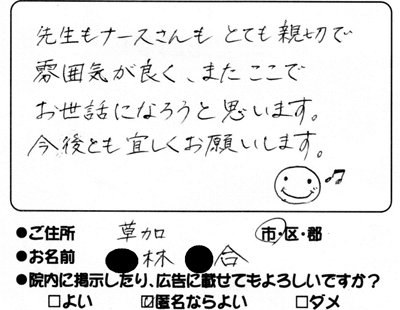 先生もナースさんも とても親切で
雰囲気が良く、また ここで
お世話になろうと思います。
今後とも宜しくお願いします。
●ご住所 草加 市・区・郡
●お名前 林 合
●院内に掲示したり、広告に載せてもよろしいですか?
□よい ☑匿名ならよい □ダメ